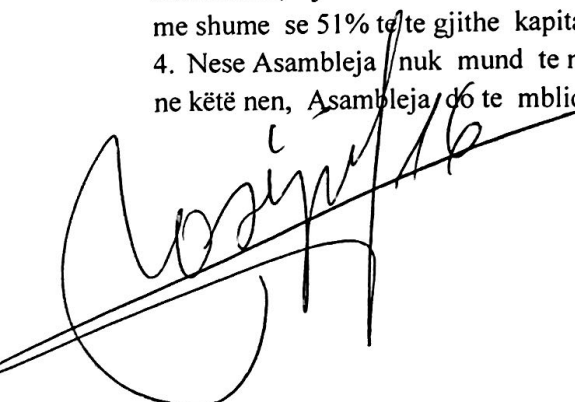 me shume se 51% te te gjithe kapita
4. Nese Asambleja nuk mund te
ne këtë nen, Asambleja do te mblid
16